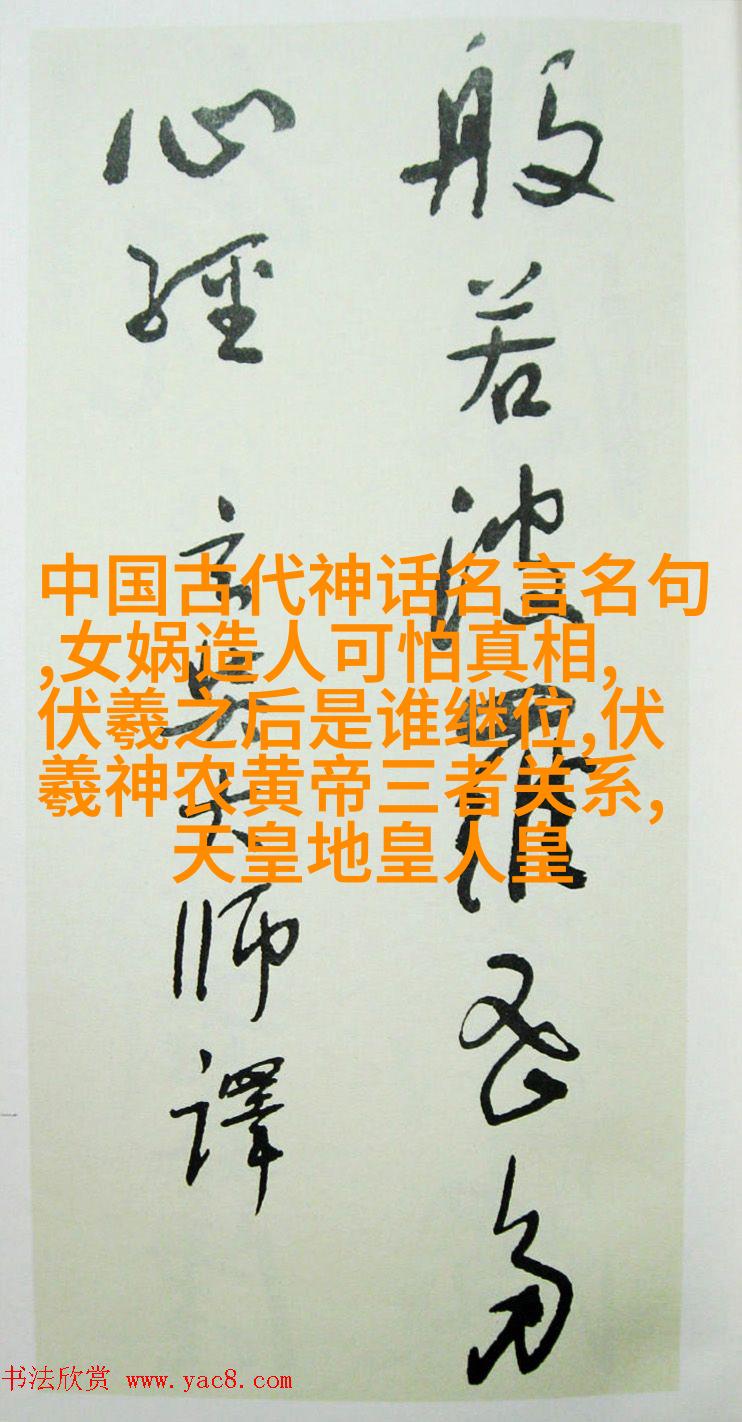 般若波羅蜜多
心經 玄奘大師譯
中国古代神话名言名句
,女娲造人可怕真相,
伏羲之后是谁继位,伏
羲神农黄帝三者关系,
天皇地皇人皇
书法欣赏 www.yac8.com